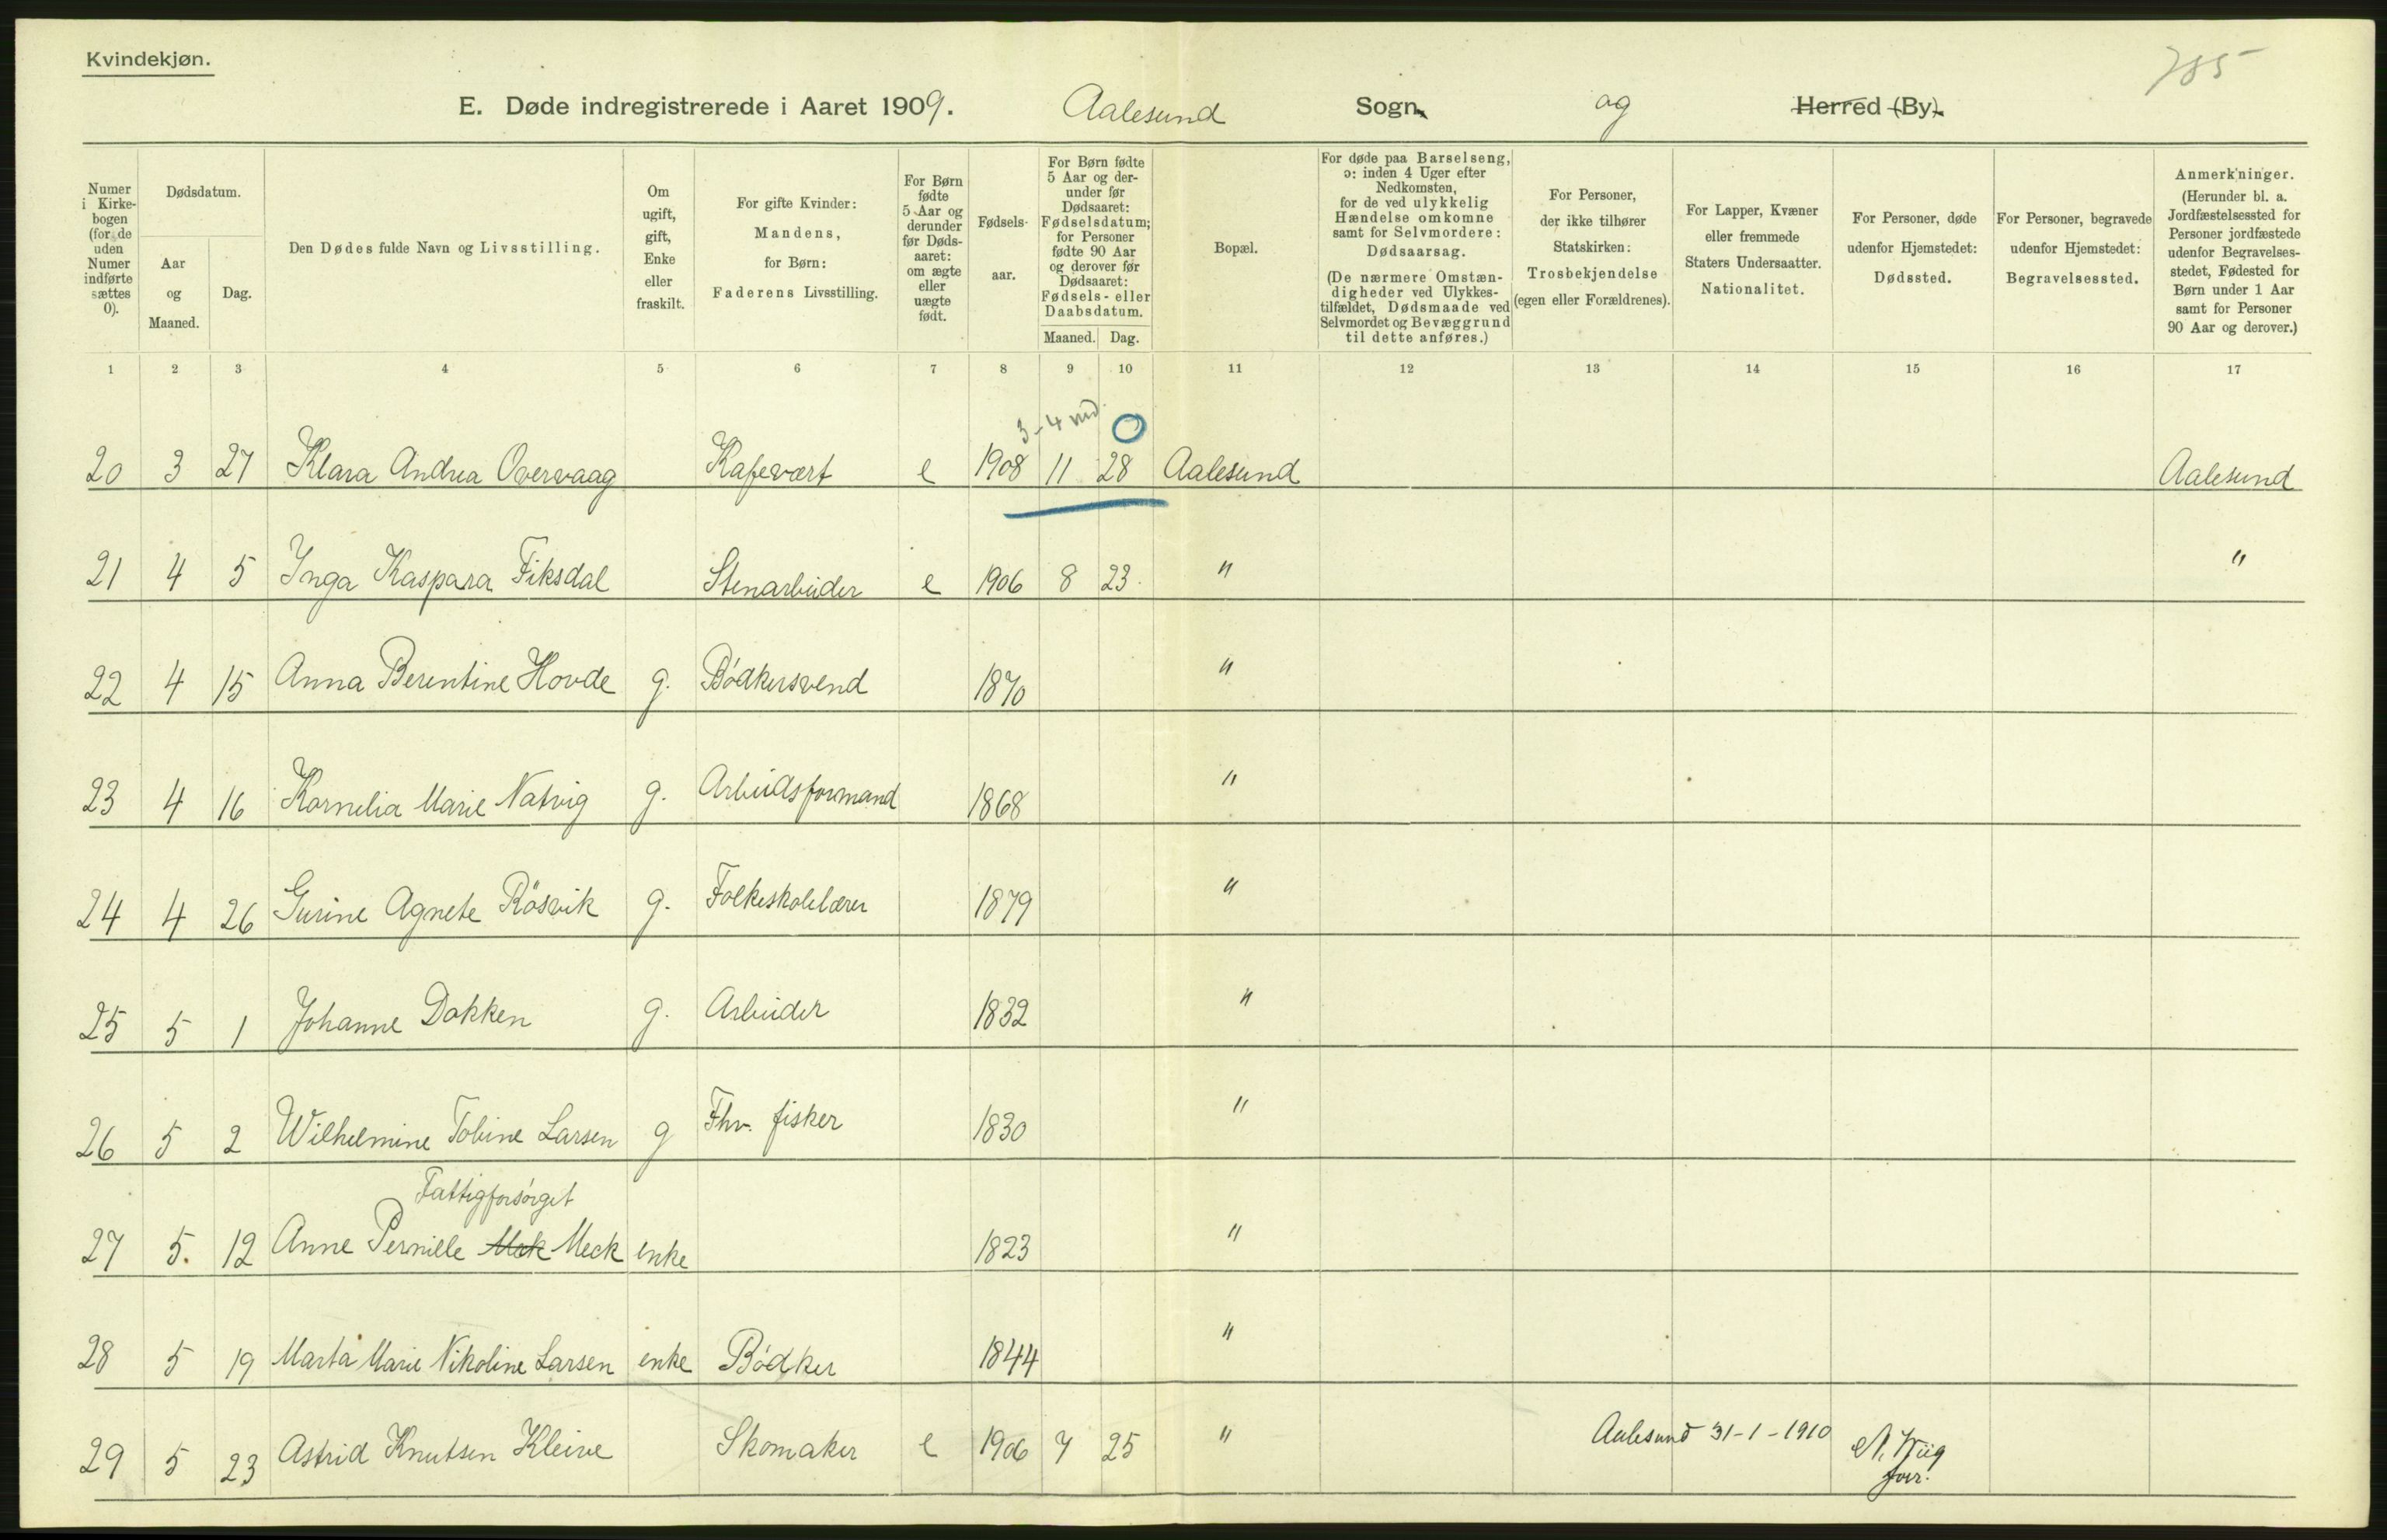 Kvindekjøn.
785
E. Døde indregistrerede i Aaret 1909. Aalesund Sogn og Herred (By).
Numer i Kirkebogen (for de uden Numer indførte sættes 0).
Dødsdatum.
Aar og Maaned.
Dag.
Den Dødes fulde Navn og Livsstilling.
Om ugift, gift, Enke eller fraskilt.
For gifte Kvinder: Mandens, for Børn: Faderens Livsstilling.
For Børn fødte 5 Aar og derunder før Dødsaaret: om ægte eller uægte født.
Fødselsaar.
For Børn fødte 5 Aar og derunder før Dødsaaret: Fødselsdatum; for Personer fødte 90 Aar og derover før Dødsaaret: Fødsels- eller Daabsdatum.
Maaned. Dag.
Bopæl.
For døde paa Barselseng, ɔ: inden 4 Uger efter Nedkomsten, for de ved ulykkelig Hændelse omkomne samt for Selvmordere: Dødsaarsag. (De nærmere Omstændigheder ved Ulykkestilfældet, Dødsmaade ved Selvmordet og Bevæggrund til dette anføres.)
For Personer, der ikke tilhører Statskirken: Trosbekjendelse (egen eller Forældrenes).
For Lapper, Kvæner eller fremmede Staters Undersaatter. Nationalitet.
For Personer, døde udenfor Hjemstedet: Dødssted.
For Personer, begravede udenfor Hjemstedet: Begravelsessted.
Anmerkninger. (Herunder bl. a. Jordfæstelsessted for Personer jordfæstede udenfor Begravelsesstedet, Fødested for Børn under 1 Aar samt for Personer 90 Aar og derover.)
1 2 3 4 5 6 7 8 9 10 11 12 13 14 15 16 17
3-4 md. 0
20 3 27 Klara Andrea Overvaag Kafevært e 1908 11 28 Aalesund Aalesund
21 4 5 Inga Kaspara Fiksdal Stenarbeider e 1906 8 23. " "
22 4 15 Anna Berentine Hovde g. Bødkersvend 1870 "
23 4 16 Kornelia Marie Natvig g. Arbeidsformand 1868 "
24 4 26 Gurine Agnete Rösvik g. Folkeskolelærer 1879 "
25 5 1 Johanne Dokken g. Arbeider 1832 "
26 5 2 Wilhelmine Tobine Larsen g Fhv. fisker 1830 "
Fattigforsørget
27 5. 12 Anne Pernille Mek Meck enke 1823 "
28 5 19 Marta Marie Nikoline Larsen enke Bødker 1844 "
29 5 23 Astrid Knutsen Kleive Skomaker e 1906 7 25 " Aalesund 31-1-1910